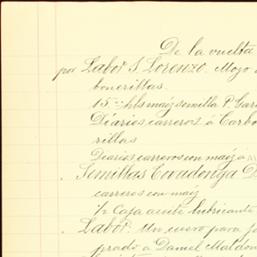 De la vuelta
por Labor S. Lorenzo. Mozo
bonerillas.
15 hls maíz semilla P. Gar
Diarios carreros á Carbo
rillas
Diarios carreros con maíz á
Semillas Covadonga D
carreros con maíz
1/2 Caja aceite lubricante
Labor. Un cuero para
prado á Daniel Maldon